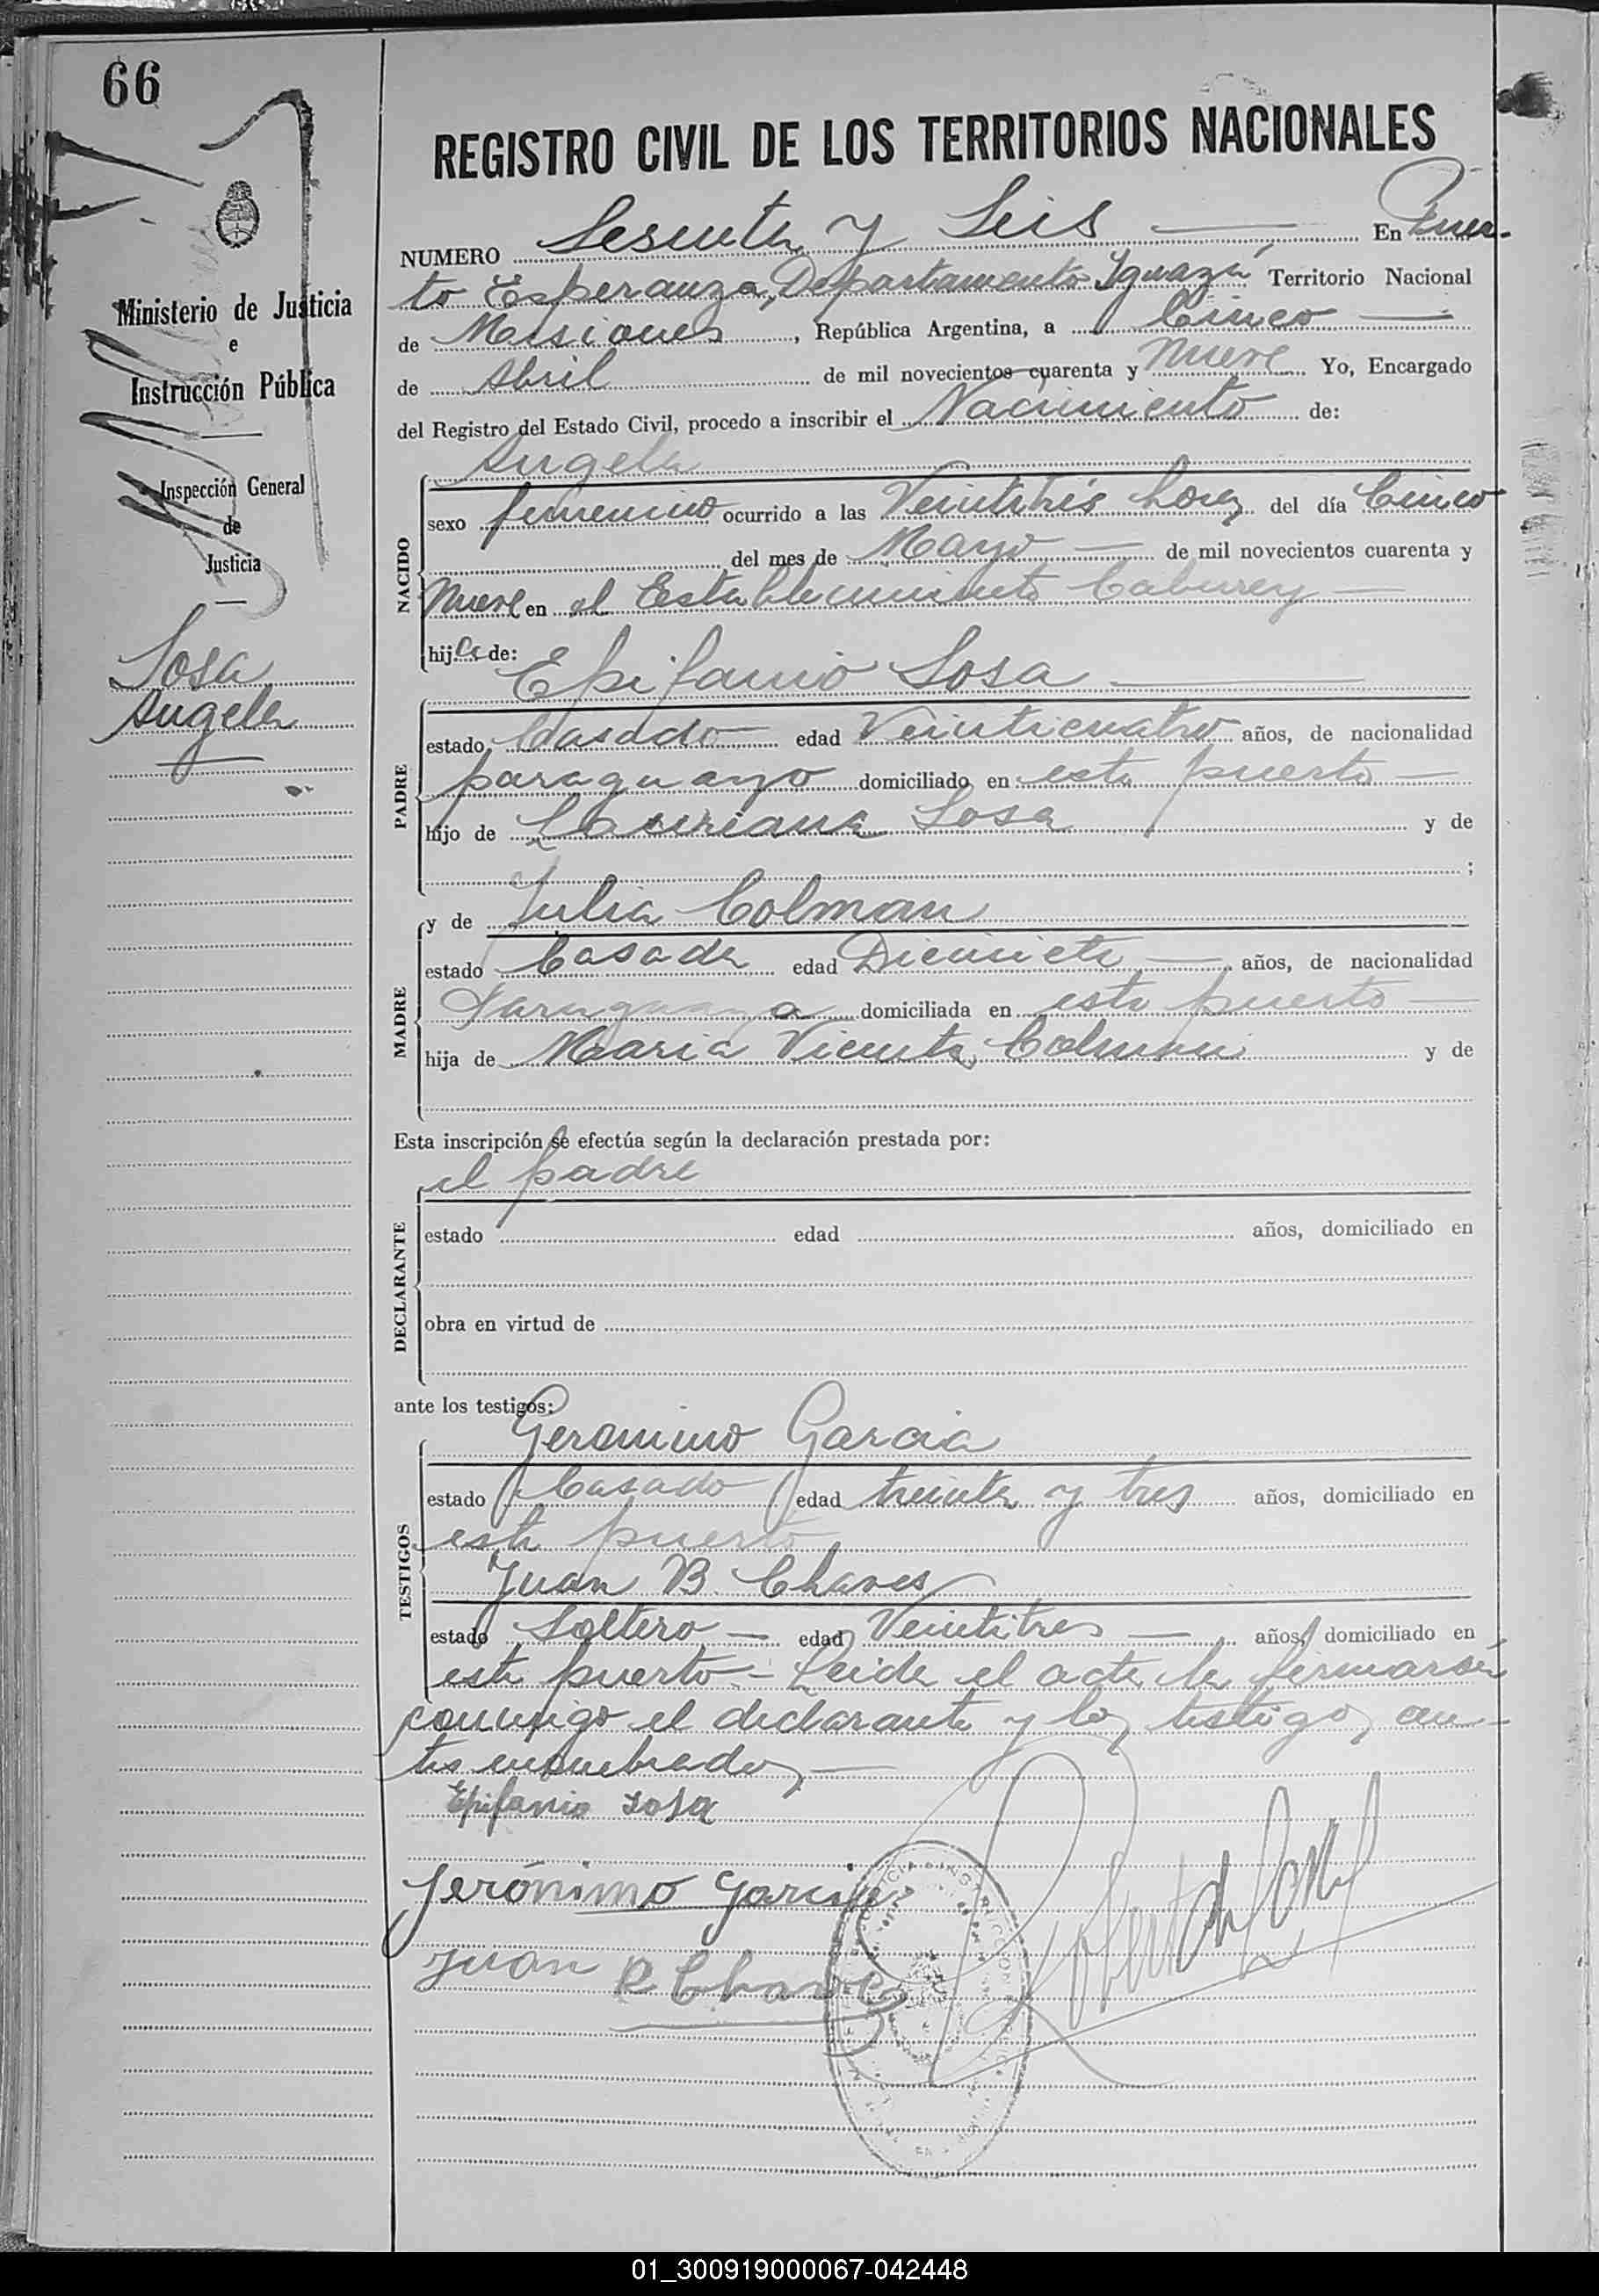 66
REGISTRO CIVIL DE LOS TERRITORIOS NACIONALES
NUMERO Sesenta y Seis En Puer-
to Esperanza, Departamento Iguazú Territorio Nacional
de Misiones, República Argentina, a Cinco
de Abril de mil novecientos cuarenta y Nueve Yo, Encargado
del Registro del Estado Civil, procedo a inscribir el Nacimiento de:
Angela
NACIDO
sexo femenino ocurrido a las Veintitrés horas del día Cinco
del mes de Mayo de mil novecientos cuarenta y
Nueve en el Establecimiento Caburey
hija de:
Epifanio Sosa
PADRE
estado Casado edad Veinticuatro años, de nacionalidad
paraguayo domiciliado en este puerto
hijo de Sosa y de
;
y de Julia Colman
MADRE
estado Casada edad Diecisiete años, de nacionalidad
Paraguaya domiciliada en este puerto
hija de Maria Vicenta Colman y de
Esta inscripción se efectúa según la declaración prestada por:
el padre
DECLARANTE
estado edad años, domiciliado en
obra en virtud de
ante los testigos:
Geronimo Garcia
TESTIGOS
estado Casado edad treinta y tres años, domiciliado en
este puerto
Juan B. Chaves
estado Soltero edad Veintitres años, domiciliado en
este puerto - Leida el acta la firmarón
conmigo el declarante y los testigos an-
tes enombrados
Epifanio Sosa
Jerónimo Garcia
Juan B Chavez
Ministerio de Justicia
e
Instrucción Pública
Inspección General
de
Justicia
Sosa
Angela
01_300919000067-042448